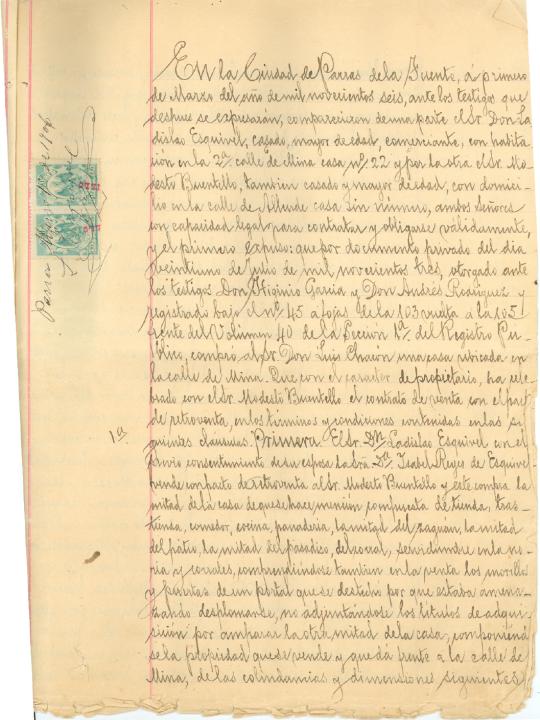 En la Ciudad de Parras de la Fuente, á primero
de Marzo del año de mil novecientos seis, ante los testigos que
despues se expresarán, comparecieron de una parte el Sr. Don La-
dislao Esquivel, casado, mayor de edad, comerciante, con habita-
ción en la 2ª calle de Mina casa nº 22 y por la otra el Sr. Mo-
desto Buentello, tambien casado y mayor de edad, con domici-
lio en la calle de Allende casa sin número, ambos Señores
con capacidad legal para contratar y obligarse válidamente,
y el primero expuso: que por documento privado del dia
veintiuno de Julio de mil novecientos tres, otorgado ante
los testigos Don Higinio Garcia y Don Andres Rodriguez y
registrado bajo el nº 45 a fojas de la 103 vuelta á la 105
frente del Volúmen 40 de la Sección 1ª del Registro Pú-
blico, compró al Sr. Don Luis Chacon una casa ubicada en
la calle de Mina. Que con el caracter de propietario, ha cele-
brado con el Sr. Modesto Buentello el contrato de venta con el pacto
de retroventa, en los términos y condiciones contenidas en las si-
guientes clausulas. Primera. El Sr. Dn Ladislao Esquivel con el
1ª
previo consentimiento de su esposa la Sra. Dª Isabel Reyes de Esquivel
vende con pacto de retroventa al Sr. Modesto Buentello y este compra la
mitad de la casa de que se hace mención compuesta de tienda, tras-
tienda, comedor, cocina, panaderia, la mitad del zaguán, la mitad
del pátio, la mitad del pasadizo, del corral, servidumbre en la no-
ria y corrales, comprendiéndose tambien en la venta los morillos
y puntas de un portal que se destechó por que estaba amena-
zando desplomarse, no adjuntándose los titulos de adqui-
sición por amparar la otra mitad de la casa, componien-
se la propiedad que se vende y queda frente a la calle de
Mina, de las colindancias y dimensiones siguientes
Parras